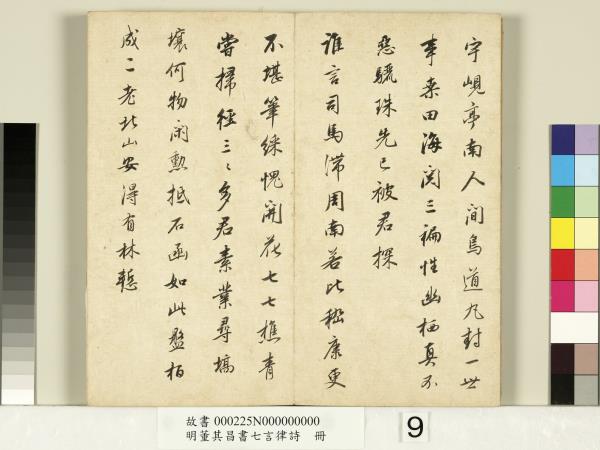 宇峴亭南人間鳥道九封一世
事桑田海閱三褊性幽栖真不
惡驪珠先已被君探
誰言司馬滯周南若比嵇康更
不堪筆綵愧開花七七樵青
當掃徑三三多君素業尋墒
壤何物閑勳抵石函如此盤桓
成二老北山安得有林慙
故書 000225N000000000
明董其昌書七言律詩 冊
9